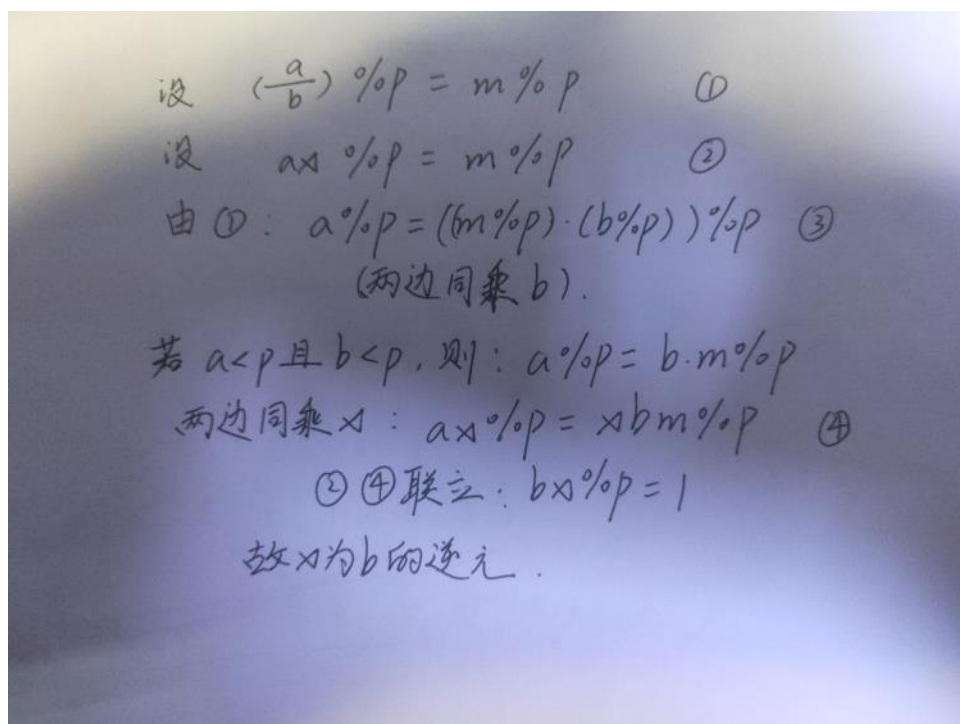 设 (a/b) %p = m%p ①
设 ax %p = m%p ②
由①: a%p = ((m%p)·(b%p))%p ③
(两边同乘b).
若 a<p 且 b<p, 则: a%p = b·m%p
两边同乘x: ax%p = xbm%p ④
②④联立: bx%p = 1
故x为b的逆元.